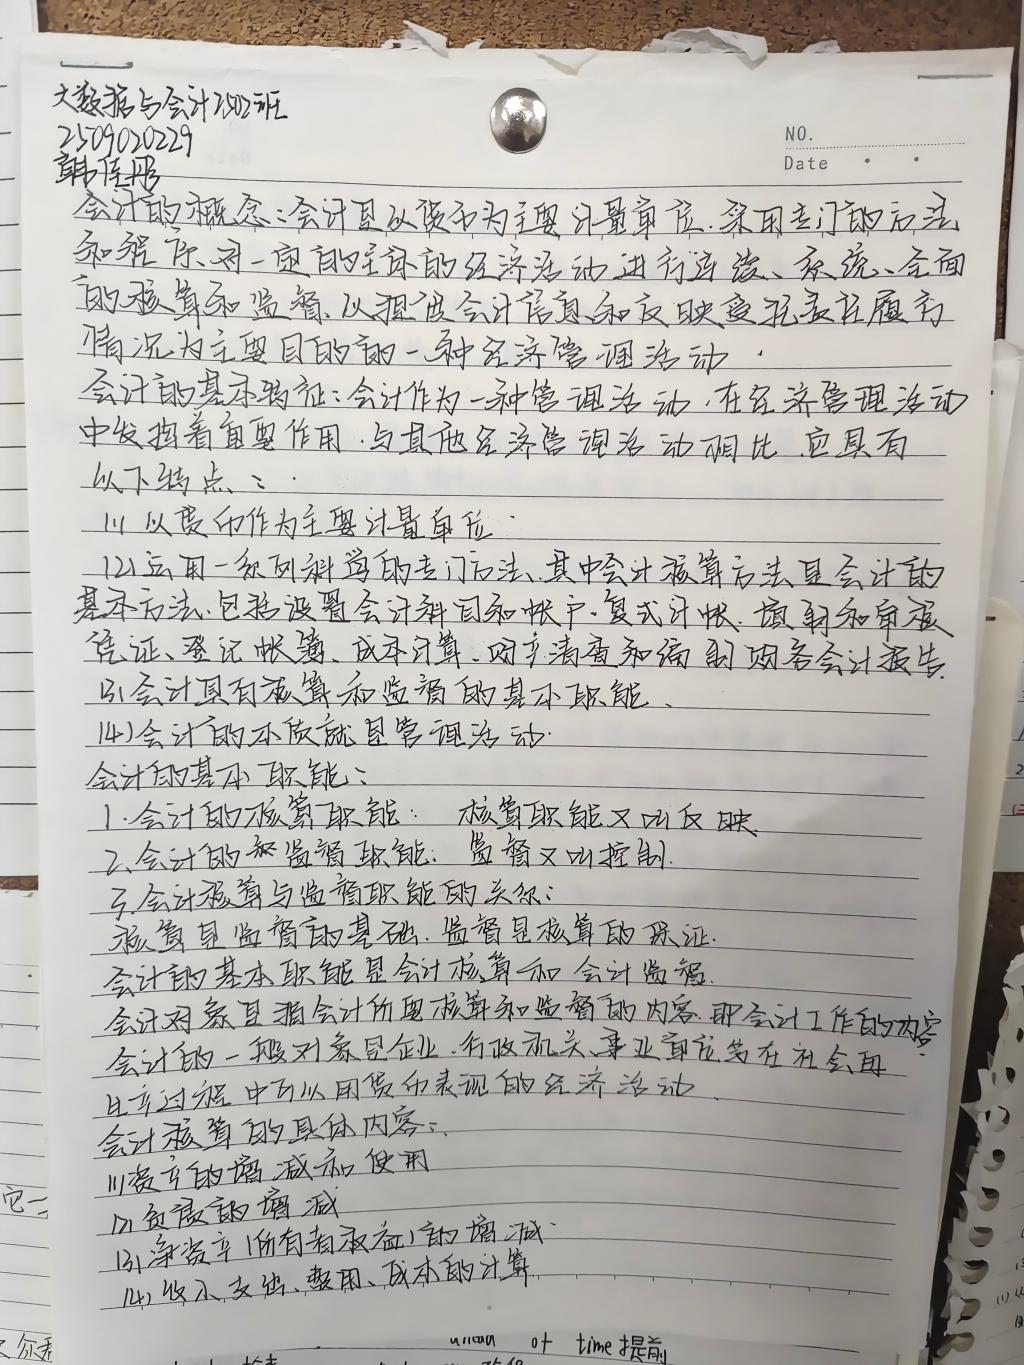 大数据与会计2502班
2509020229
韩佳彤
NO.
Date
会计的概念:会计是以货币为主要计量单位.采用专门的方法
和程序.对一定的主体的经济活动进行连续、系统、全面
的核算和监督.以提供会计信息和反映受托责任履行
情况为主要目的的一种经济管理活动.
会计的基本特征:会计作为一种管理活动.在经济管理活动
中发挥着重要作用.与其他经济管理活动相比.它具有
以下特点:
(1)以货币作为主要计量单位.
(2)运用一系列科学的专门方法.其中会计核算方法是会计的
基本方法.包括设置会计科目和帐户.复式计帐.填制和审核
凭证、登记帐簿、成本计算、财产清查和编制财务会计报告.
(3)会计具有核算和监督的基本职能.
(4)会计的本质就是管理活动.
会计的基本职能:
1.会计的核算职能: 核算职能又叫反映
2.会计的监督职能: 监督又叫控制.
3.会计核算与监督职能的关系:
核算是监督的基础.监督是核算的保证.
会计的基本职能是会计核算和会计监督.
会计对象是指会计所要核算和监督的内容.即会计工作的内容.
会计的一般对象是企业.行政机关、事业单位等在社会再
生产过程中可以用货币表现的经济活动.
会计核算的具体内容:
(1)资产的增减和使用
(2)负债的增减
(3)净资产(所有者权益)的增减.
(4)收入、支出、费用、成本的计算
ahead of time提前